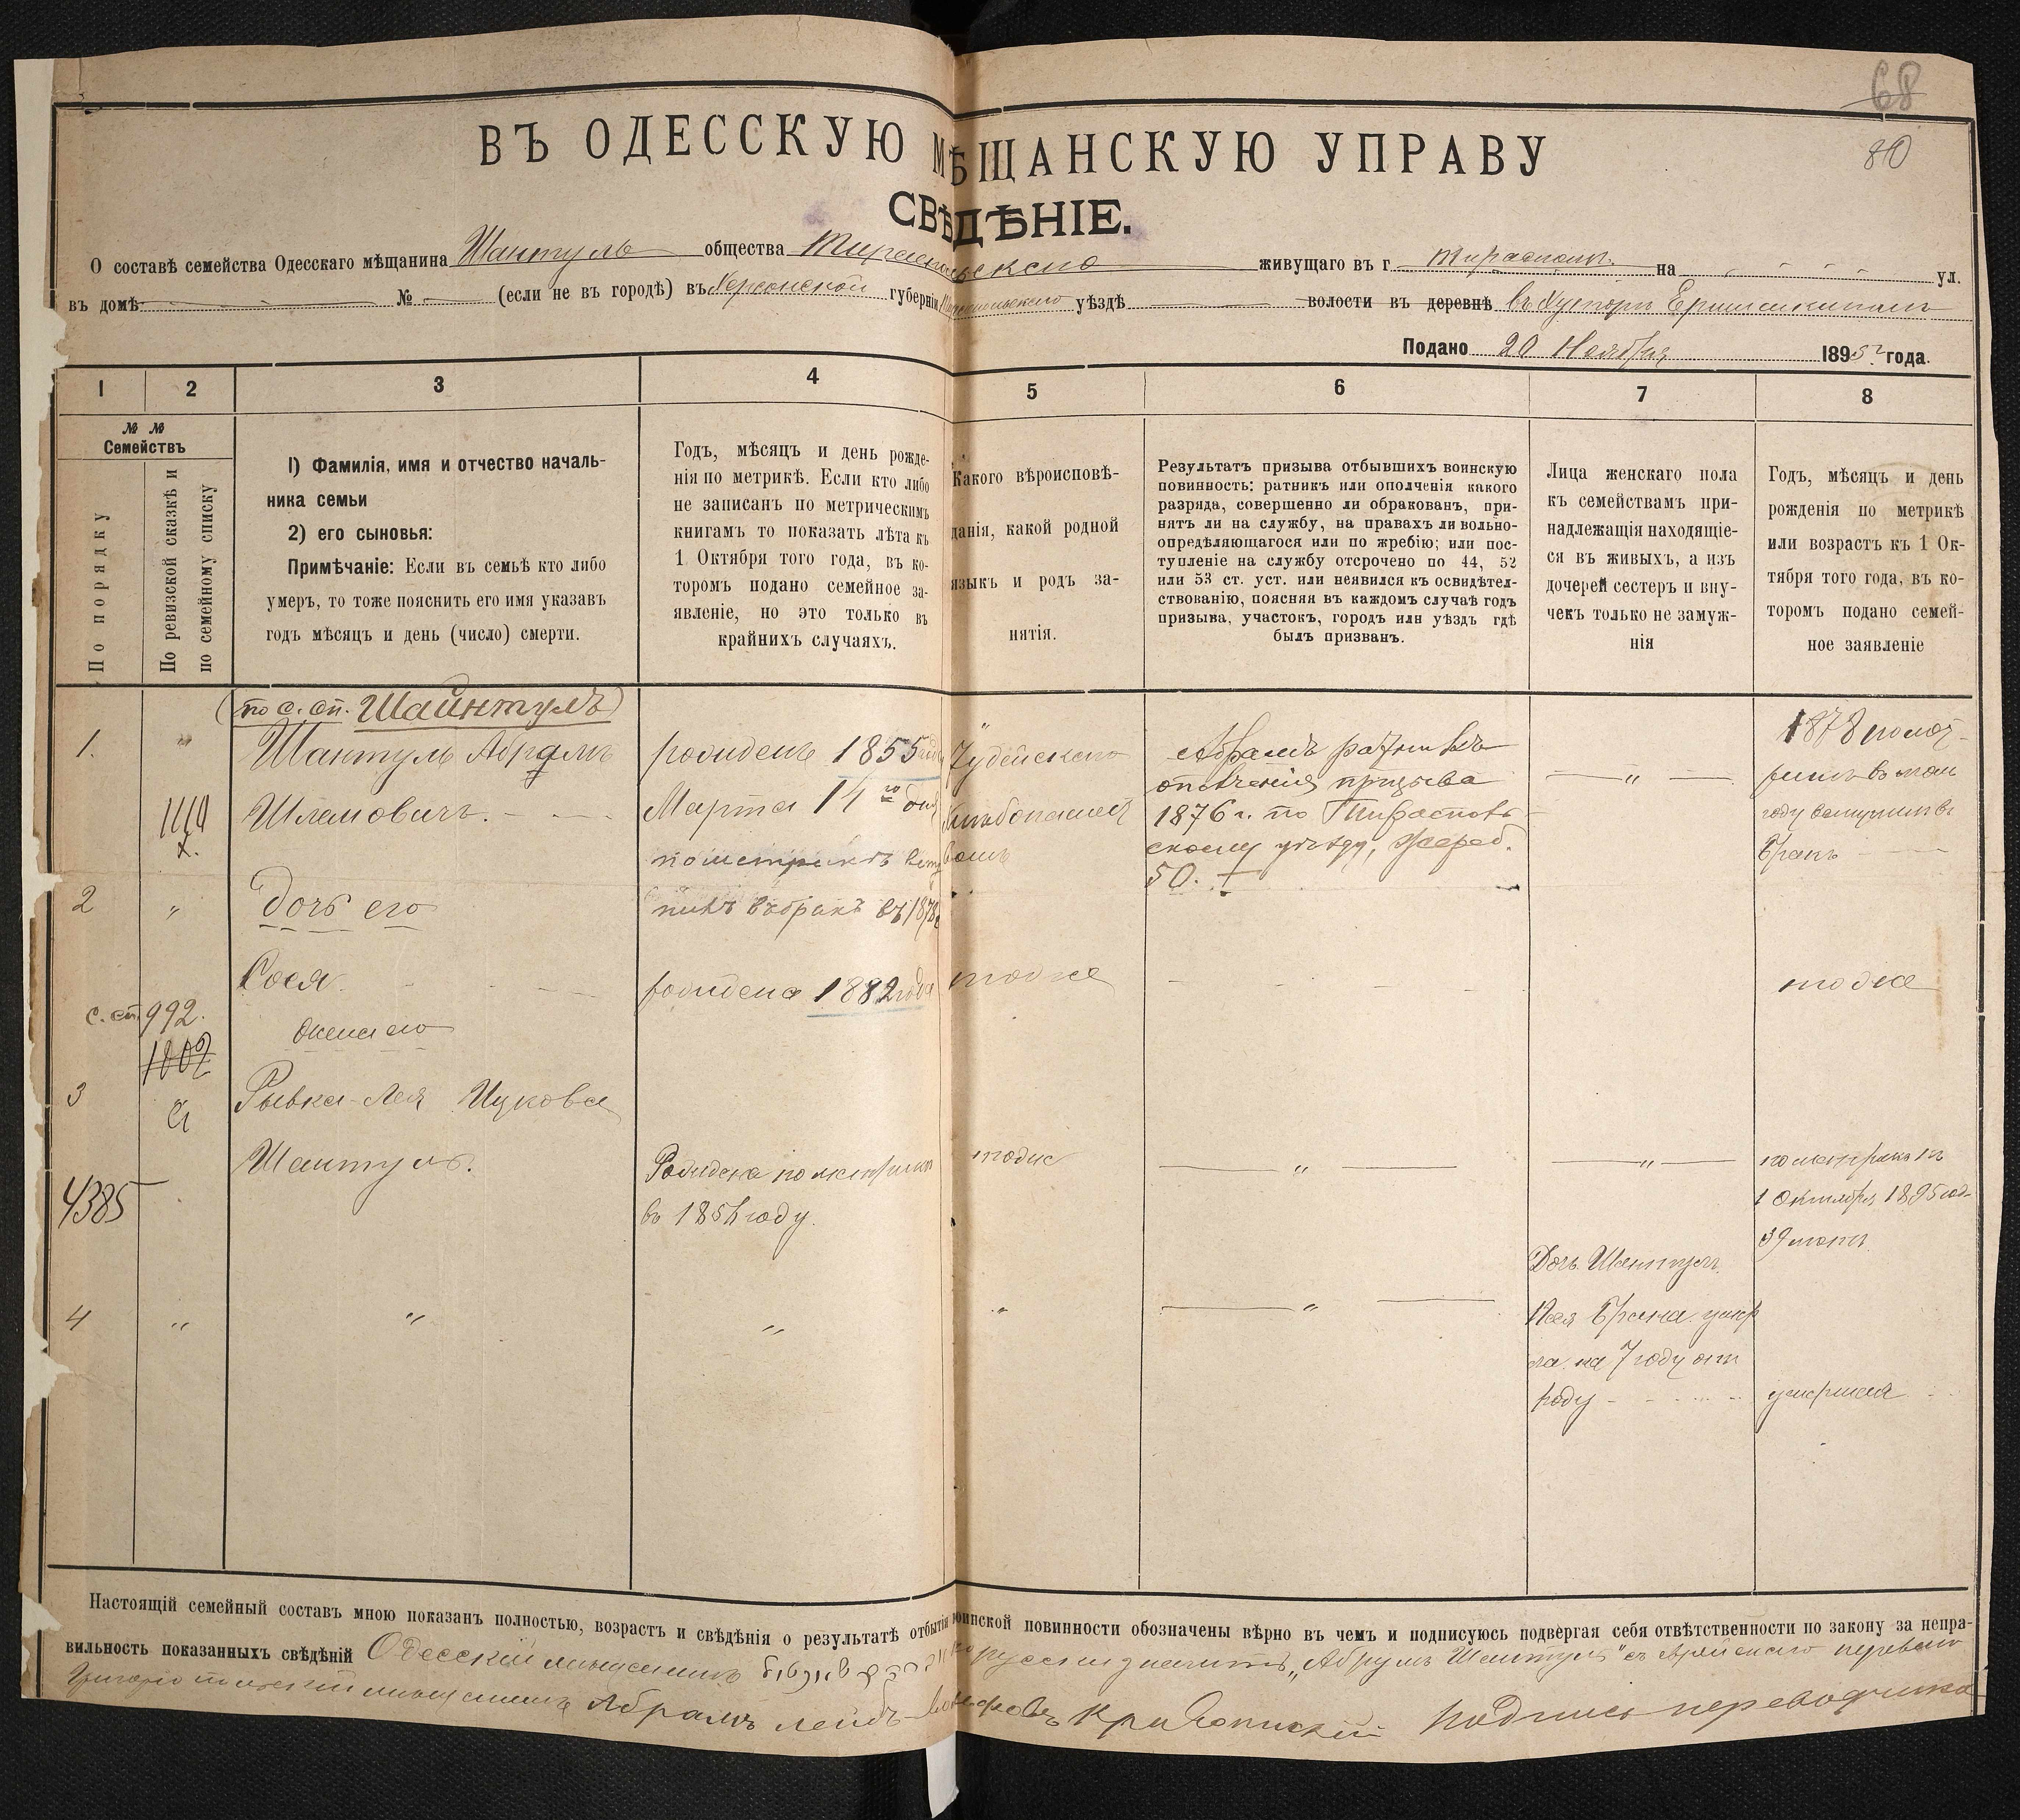 68
80
ВЪ ОДЕССКУЮ МѢЩАНСКУЮ УПРАВУ
СВѢДѢНІЕ.
О составѣ семейства Одесскаго мѣщанина Шантуль общества живущаго въ г. на ул.
въ домѣ № (если не въ городѣ) въ Херсонской губерніи уѣздѣ волости въ деревнѣ
Подано 20 Ноября 1895 года.
1 2 3 4 5 6 7 8
№ №
Семействъ
По порядку
По ревизской сказкѣ и
по семейному списку
1) Фамилія, имя и отчество началь-
ника семьи
2) его сыновья:
Примѣчаніе: Если въ семьѣ кто либо
умеръ, то тоже пояснить его имя указавъ
годъ мѣсяцъ и день (число) смерти.
Годъ, мѣсяцъ и день рожде-
нія по метрикѣ. Если кто либо
не записанъ по метрическимъ
книгамъ то показать лѣта къ
1 Октября того года, въ ко-
торомъ подано семейное за-
явленіе, но это только въ
крайнихъ случаяхъ.
Какого вѣроисповѣ-
данія, какой родной
языкъ и родъ за-
нятія.
Результатъ призыва отбывшихъ воинскую
повинность: ратникъ или ополченія какого
разряда, совершенно ли обракованъ, при-
нятъ ли на службу, на правахъ ли вольно-
опредѣляющагося или по жребію; или пос-
тупленіе на службу отсрочено по 44, 52
или 53 ст. уст. или неявился къ освидѣтел-
ствованію, поясняя въ каждомъ случаѣ годъ
призыва, участокъ, городъ или уѣздъ гдѣ
былъ призванъ.
Лица женскаго пола
къ семействамъ при-
надлежащія находящіе-
ся въ живыхъ, а изъ
дочерей сестеръ и вну-
чекъ только не замуж-
нія
Годъ, мѣсяцъ и день
рожденія по метрикѣ
или возрастъ къ 1 Ок-
тября того года, въ ко-
торомъ подано семей-
ное заявленіе
(по с. сп. Шайнтулъ)
1. " Шантуль Абрамъ
Шлемовичъ.
1110
рожденъ 1855 года
Марта 14го дня
въ бракъ въ 1878
Іудейскаго
Абрамъ ратникъ
ополченія призыва
1876 г. по Тираспол-
скому уѣзду, Жереб.
50.
"
1878
году вступилъ въ
бракъ
2 " Дочь его
Рося
рождена 1882 года
тоже
тоже
с. сп. 992.
1802
жена его
3 Рывка-Лея Ицкова
Шантуль.
4385
Рождена по метрики
въ году.
тоже
"
"
1 Октября 1895 год
39 лѣтъ
4 " " " " "
Дочь Шантуль
умер
ла на 7 году отъ
роду
умершая
Настоящій семейный составъ мною показанъ полностью, возрастъ и свѣдѣнія о результатѣ отбытія воинской повинности обозначены вѣрно въ чемъ и подписуюсь подвергая себя отвѣтственности по закону за непра-
вильность показанныхъ свѣдѣній Одесскій мѣщанинъ русски значитъ „Абрумъ Шантуль" съ еврейскаго перевелъ
мѣщанинъ Абрамъ Лейбъ Подпись переводчика